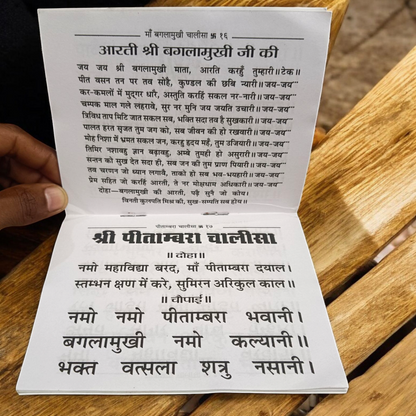 माँ बगलामुखी चालीसा ५६ १६
आरती श्री बगलामुखी जी की
जय जय श्री बगलामुखी माता, आरति करहुँ तुम्हारी॥टेक॥
पीत वसन तन पर तव सोहै, कुण्डल की छबि न्यारी॥जय-जय
कर-कमलों में मुद्गर धारै, अस्तुति करहिं सकल नर-नारी॥जय-जय
चम्पक माल गले लहरावे, सुर नर मुनि जय जयति उचारी॥जय-जय
त्रिविध ताप मिटि जात सकल सब, भक्ति सदा तव है सुखकारी॥जय-जय
पालत हरत सृजत तुम जग को, सब जीवन की हो रखवारी॥जय-जय
मोह निशा में भ्रमत सकल जन, करहु हृदय महँ, तुम उजियारी॥जय-जय
तिमिर नशावहु ज्ञान बढ़ावहु, अम्बे तुमही हो असुरारी॥जय-जय
सन्तन को सुख देत सदा ही, सब जन की तुम प्राण पियारी॥जय-जय
तव चरणन जो ध्यान लगावै, ताको हो सब भव-भयहारी॥जय-जय
प्रेम सहित जो करहिं आरती, ते नर मोक्षधाम अधिकारी॥जय-जय
दोहा—बगलामुखी की आरती, पढ़ै सुनै जो कोय।
विनती कुलपति मिश्र की, सुख-सम्पति सब होय॥
पीताम्बरा चालीसा १७
श्री पीताम्बरा चालीसा
॥ दोहा॥
नमो महाविद्या बरद, माँ पीताम्बरा दयाल।
स्तम्भन क्षण में करे, सुमिरन अरिकुल काल॥
॥ चौपाई॥
नमो नमो पीताम्बरा भवानी।
बगलामुखी नमो कल्यानी॥
भक्त वत्सला शत्रु नसानी।